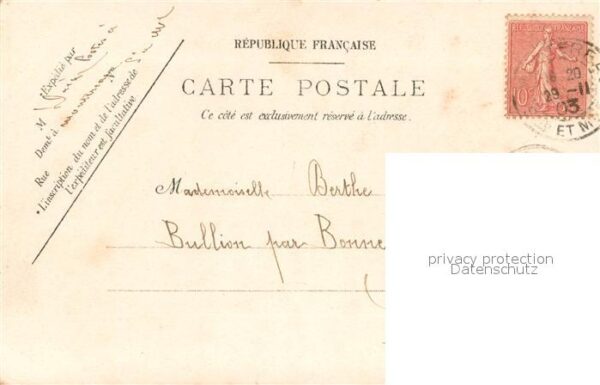 RÉPUBLIQUE FRANÇAISE
CARTE POSTALE
Ce côté est exclusivement réservé à l'adresse.
Expédié par
M
Demt à
Rue
*L'inscription du nom et de l'adresse de
l'expéditeur est facultative
10c
29-11
03
ET M
Mademoiselle Berthe
Bullion par Bonne
privacy protection
Datenschutz